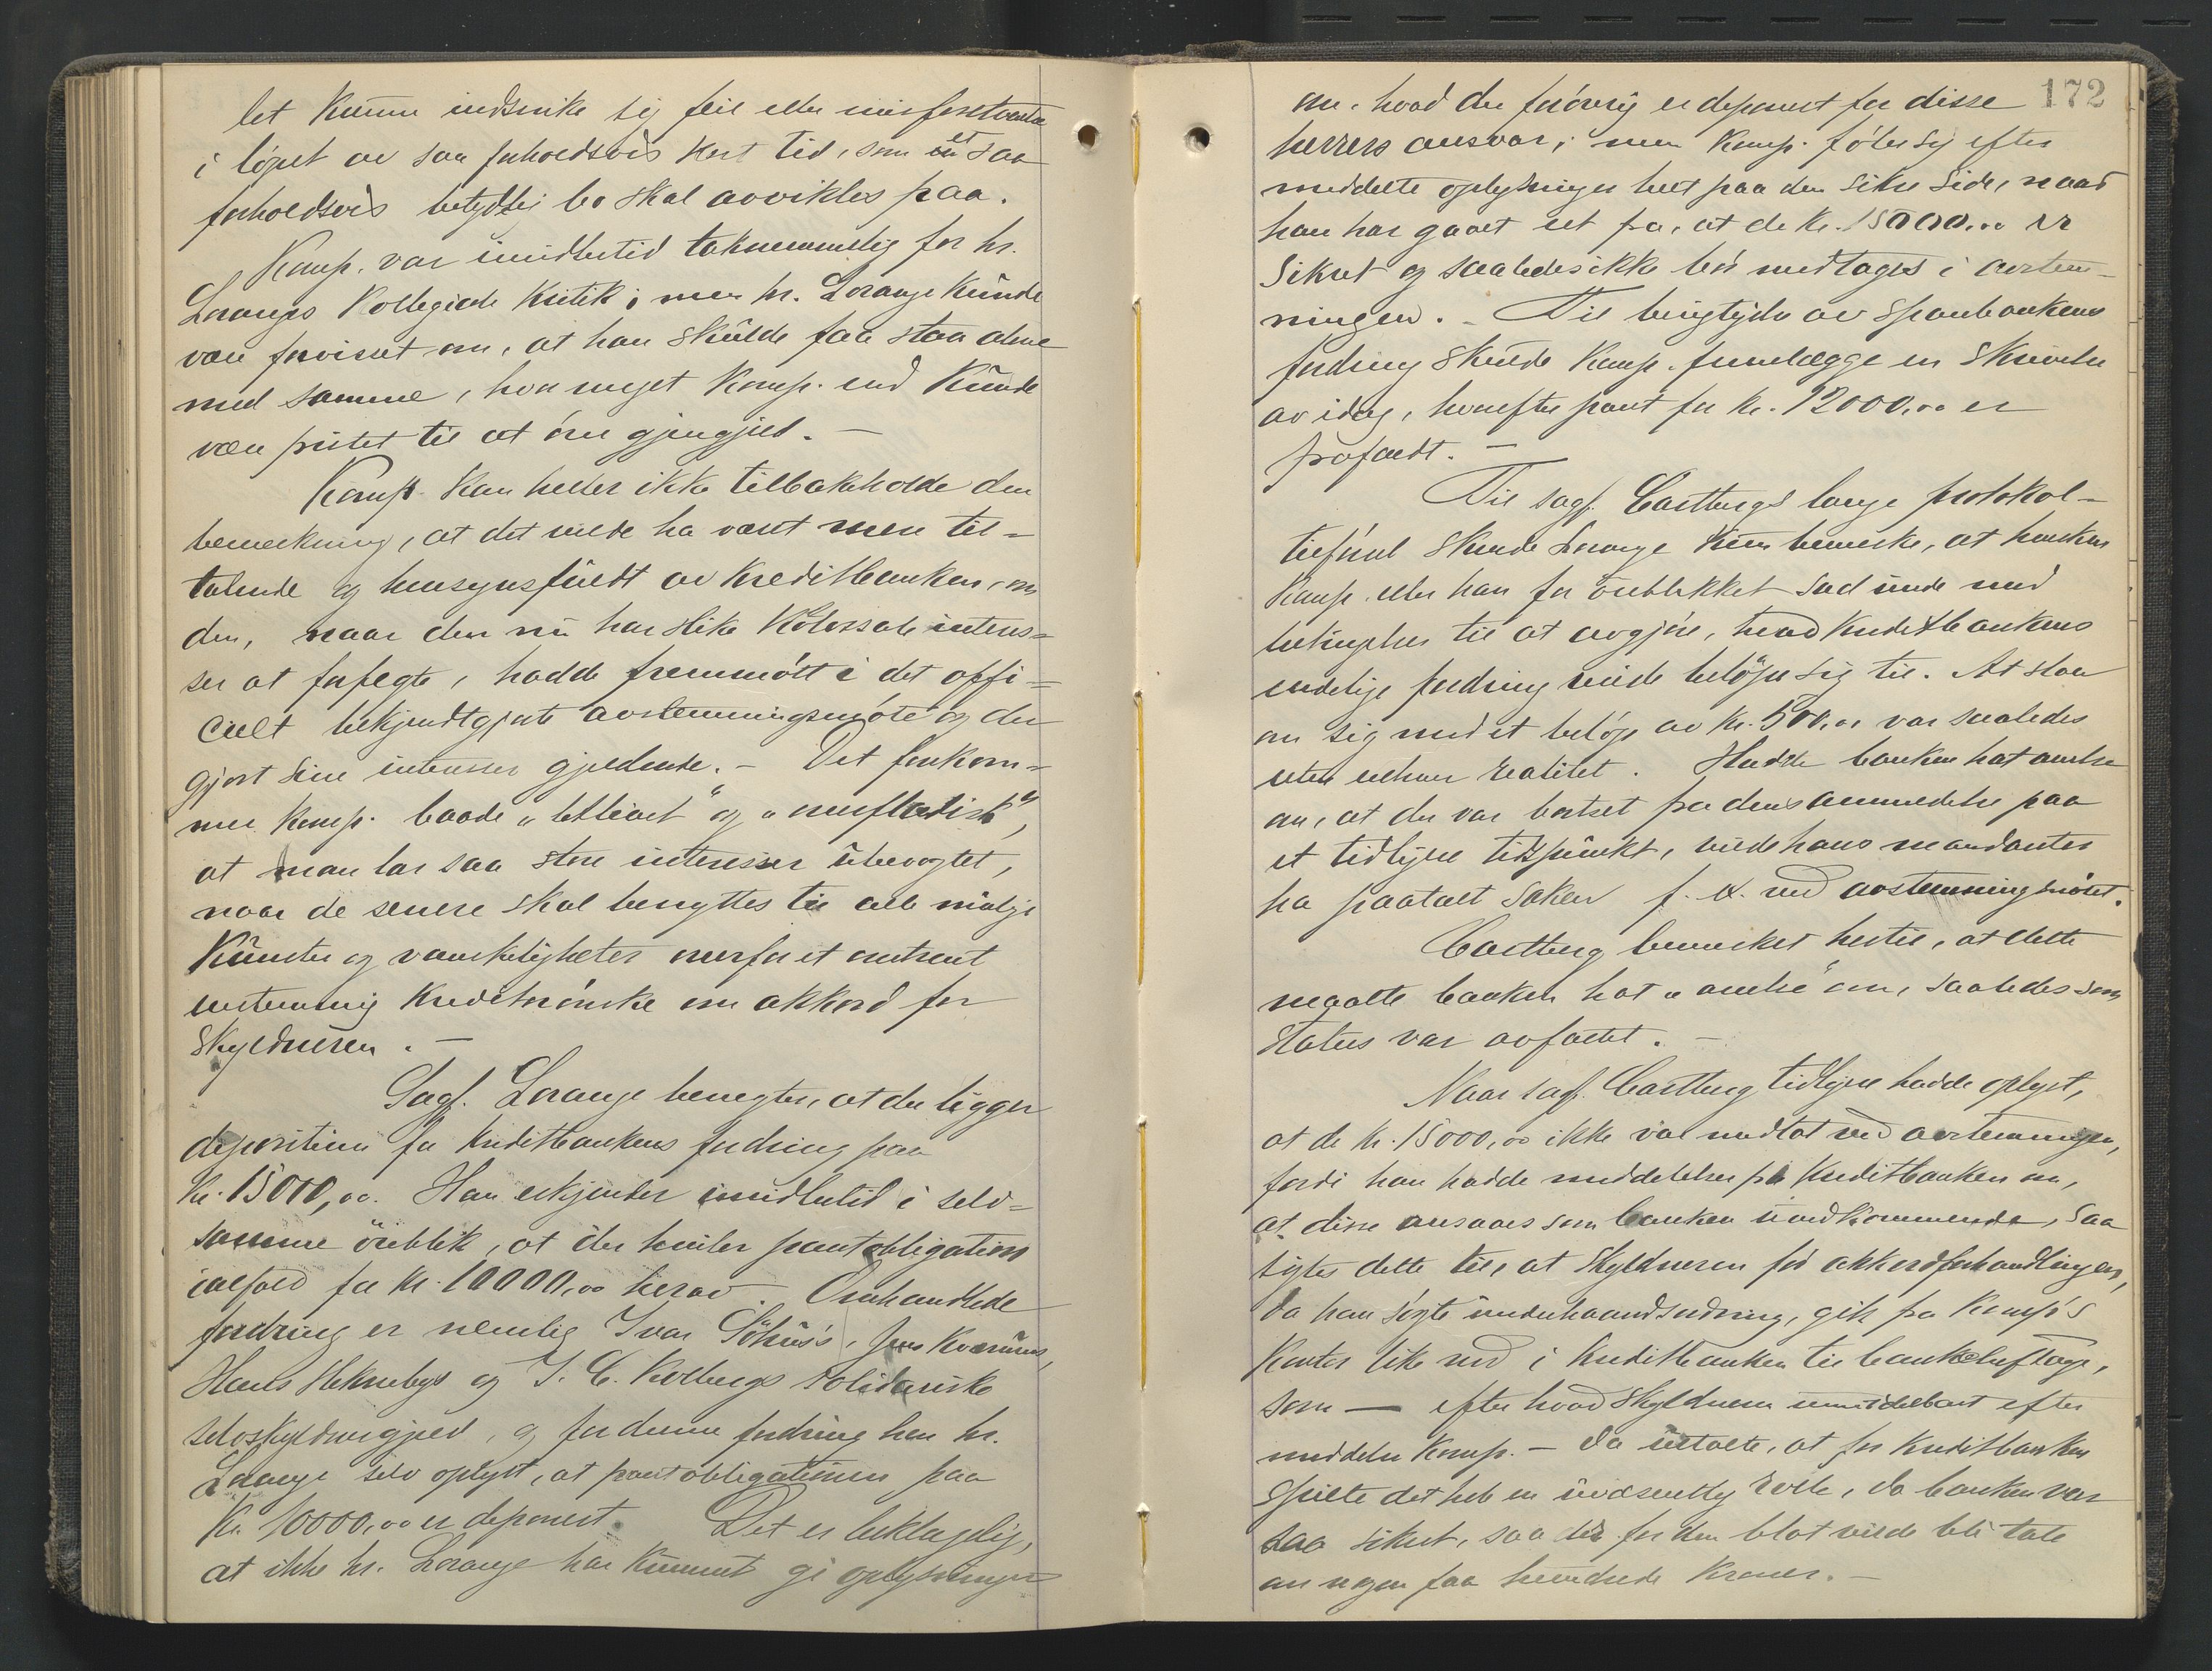 let kunne indsnike sig feil eller misforstaaelse
i løpet av saa forholdsvis kort tid, som et saa
forholdsvis betydelig bo skal avvikles paa.
Kamp. var imidlertid taknemmelig for hr.
Loranges kollegiale kritik; men hr. Lorange kunde
være forvisset om, at han skulde faa staa alene
med samme, hvor meget Kamp. end kunde
være fristet til at øve gjengjeld. —
Kamp. kan heller ikke tilbakeholde den
bemerkning, at det vilde ha været mere til-
talende og hensynsfuldt av Kreditbanken, om
den, naar den nu har slike kolossale interes-
ser at forfegte, hadde fremmøtt i det offi-
cielt bekjendtgjorte avstemningsmøte og der
gjort sine interesser gjeldende. — Det forekom-
mer Kamp. baade " og "
at man lar saa store interesser ubevogtet,
naar de senere skal benyttes til alle mulige
kunster og vanskeligheter overfor et omtrent
enstemmig kreditorønske om akkord for
skyldneren. —
Sagf. Lorange benegter, at der ligger
depositum for Kreditbankens fordring paa
kr. 15000,00. Han erkjender imidlertid i selv-
samme øieblik, at der hviler pantobligation
ialfald for kr. 10000,00 herav. Omhandlede
fordring er nemlig Ivar , Jens ,
Hans og J. C. Kolbergs solidariske
selvskyldnergjeld, og for denne fordring har hr.
Lorange selv oplyst, at pantobligationen paa
kr. 10000,00 er deponert. Det er beklagelig,
at ikke hr. Lorange har kunnet gi oplysninger
172
om, hvad der forøvrig er deponert for disse
herrers ansvar; men Kamp. føler sig efter
meddelte oplysninger helt paa den sikre side, naar
han har gaaet ut fra, at de kr. 15000,00 er
sikret og saaledes ikke bør medtages i avstem-
ningen. — Til av Sparebankens
fordring skulde Kamp. fremlægge en skrivelse
av idag, hvorefter pant for kr. 12000,00 er
frafaldt. —
Til sagf. Castbergs lange protokol-
tilførsel skulde Lorange kun bemerke, at hverken
Kamp. eller han for øieblikket sad inde med
betingelser til at avgjøre, hvad Kreditbankens
endelige fordring vilde beløpe sig til. At slaa
om sig med et beløp av kr. 500,00 var saaledes
uten enhver realitet. Hadde banken hat anelse
om, at der var bortset fra dens anmeldelse paa
et tidligere tidspunkt, vilde hans mandanter
ha paatalt saken f. x. ved avstemningsmøtet.
Castberg bemerket hertil, at dette
maatte banken hat "anelse" om, saaledes som
status var avfattet. —
Naar sagf. Castberg tidligere hadde oplyst,
at de kr. 15000,00 ikke var medtat ved avstemningen,
fordi han hadde meddelelse fra Kreditbanken om,
at disse ansaaes som banken uvedkommende, saa
sigtes dette til, at skyldneren før akkordforhandlingen,
da han søgte underhaandsordning, gik fra Kamp's
kontor like ned i Kreditbanken til bankchef ,
som — efter hvad skyldneren umiddelbart efter
meddeler Kamp. — da uttalte, at for Kreditbanken
spilte det hele en uvæsentlig rolle, da banken var
saa sikret, saa der for den blot vilde bli tale
om nogen faa hundrede kroner. —